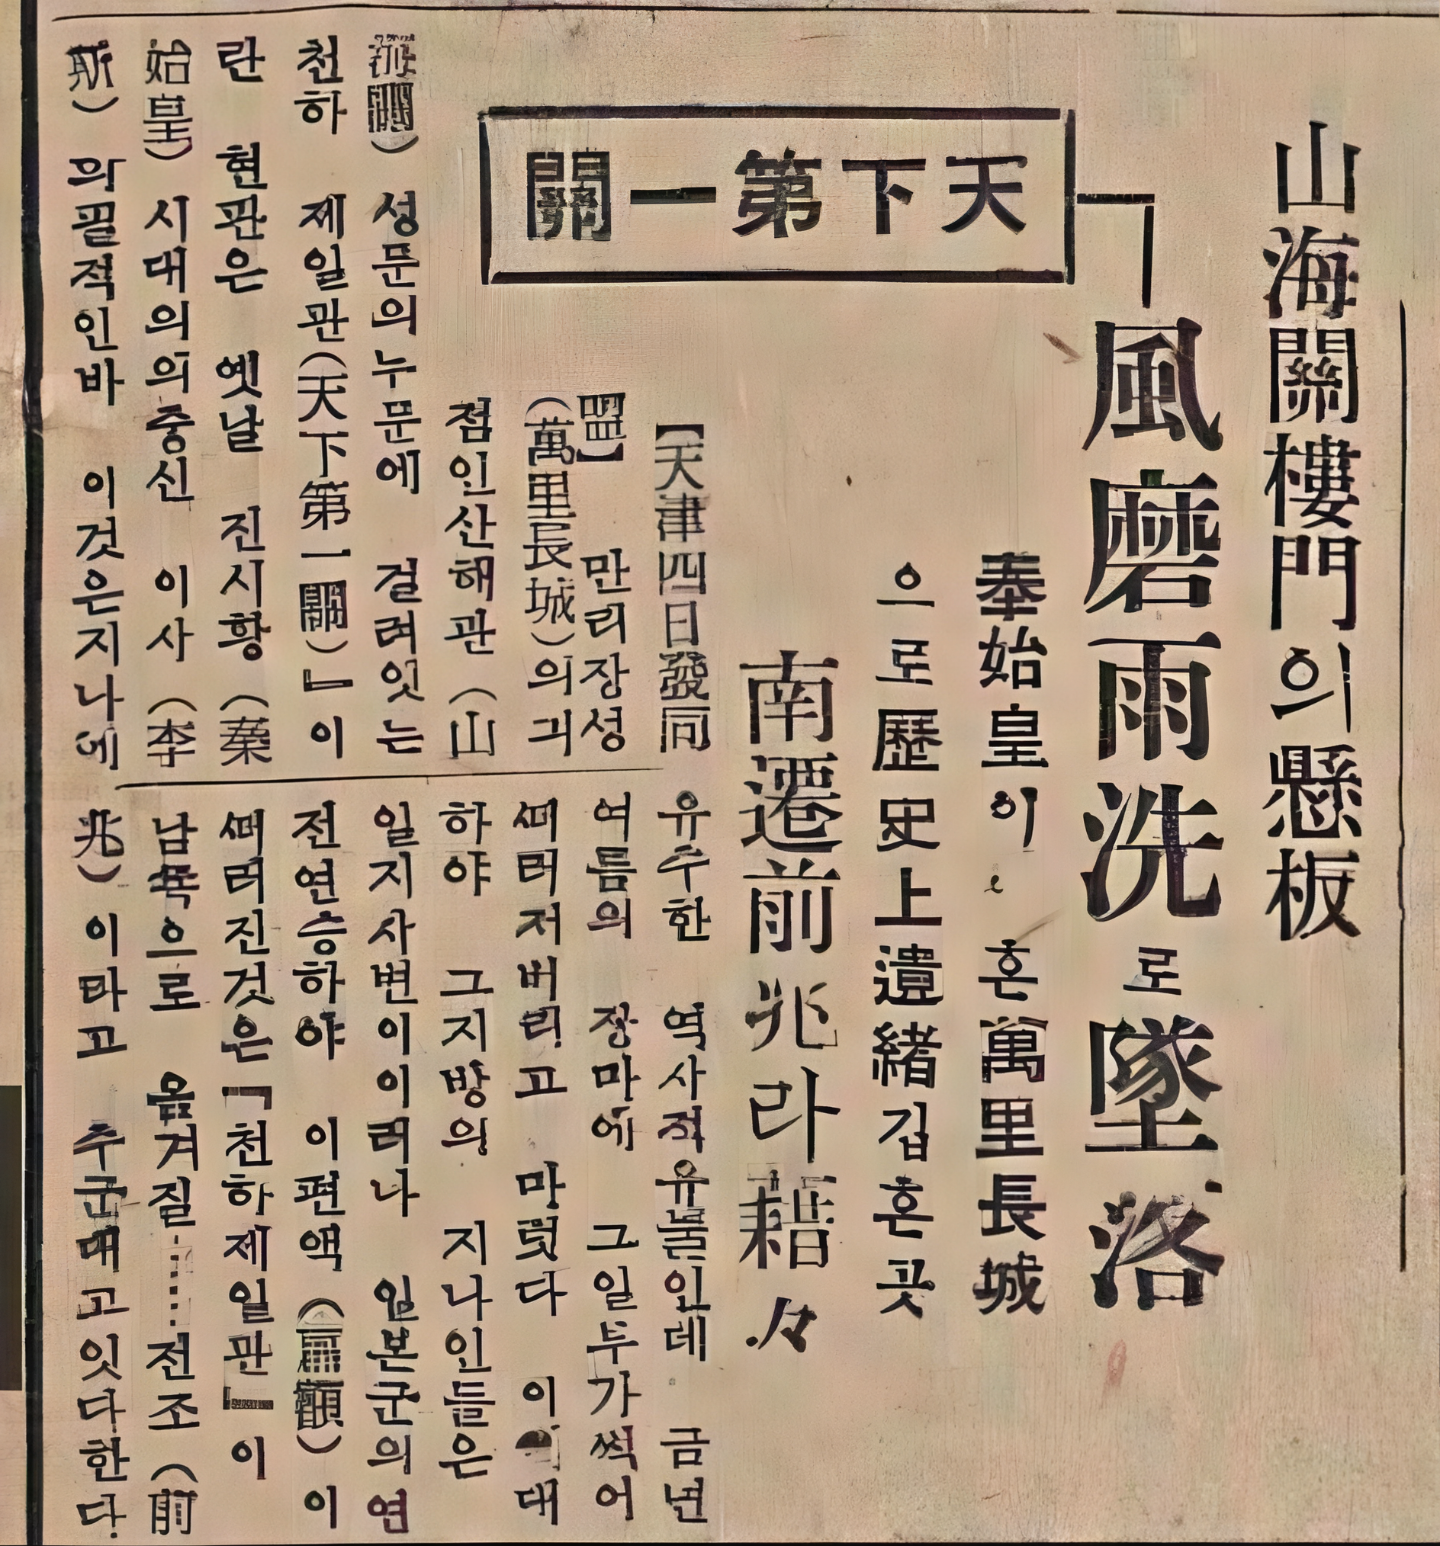 山海關樓門의懸板
天下第一關
風磨雨洗로墜落
秦始皇이 혼萬里長城
으로歷史上遺緖깁흔곳
南遷前兆라藉々
【天津四日發同
盟】 만리장성
(萬里長城)의긔
점인산해관 (山
海關) 성문의누문에 걸려잇는
천하 제일관(天下第一關)』이
란 현판은 옛날 진시황 (秦
始皇) 시대의의중신 이사 (李
斯) 의필적인바 이것은지나에
유수한 역사적유물인데 금년
여름의 장마에 그일부가썩어
떠러저버리고 마럿다 이 대
하야 그지방의 지나인들은
일지사변이이러나 일본군의연
전연승하야 이편액 (扁額) 이
떠러진것은『천하제일관』이
남쪽으로 옴겨질……전조 (前
兆) 이라고 수군대고잇다한다